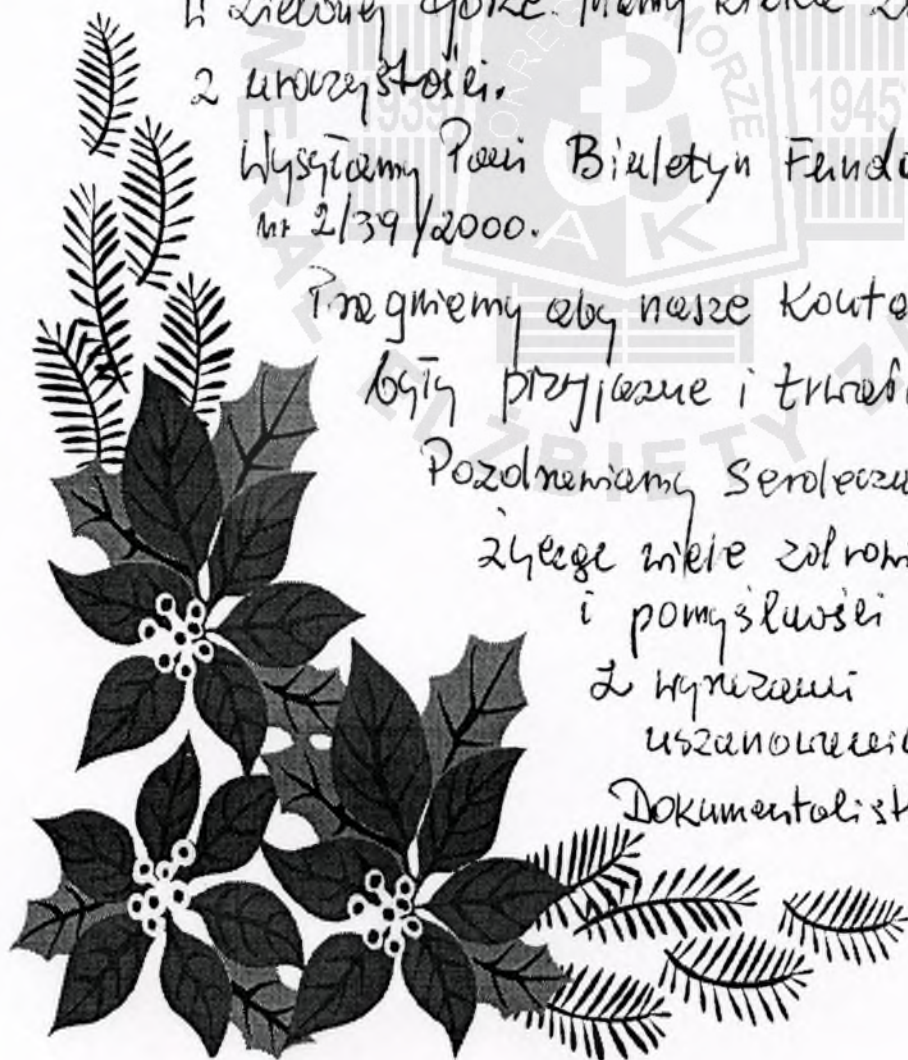 w Zielonej Górze. Mamy wielkie
z uroczystości.
Wysyłamy Pani Biuletyn Fundo
nr 2/39/2000.
Pragniemy aby nasze Konta
były przyjazne i trwał
Pozdrawiamy Serdeczn
życząc wiele zdrow
i pomyślności
z wyrazami
uszanowani
Dokumentalist
1939
1945
OKRĘG
MORZE
AK
ELŻBIETY